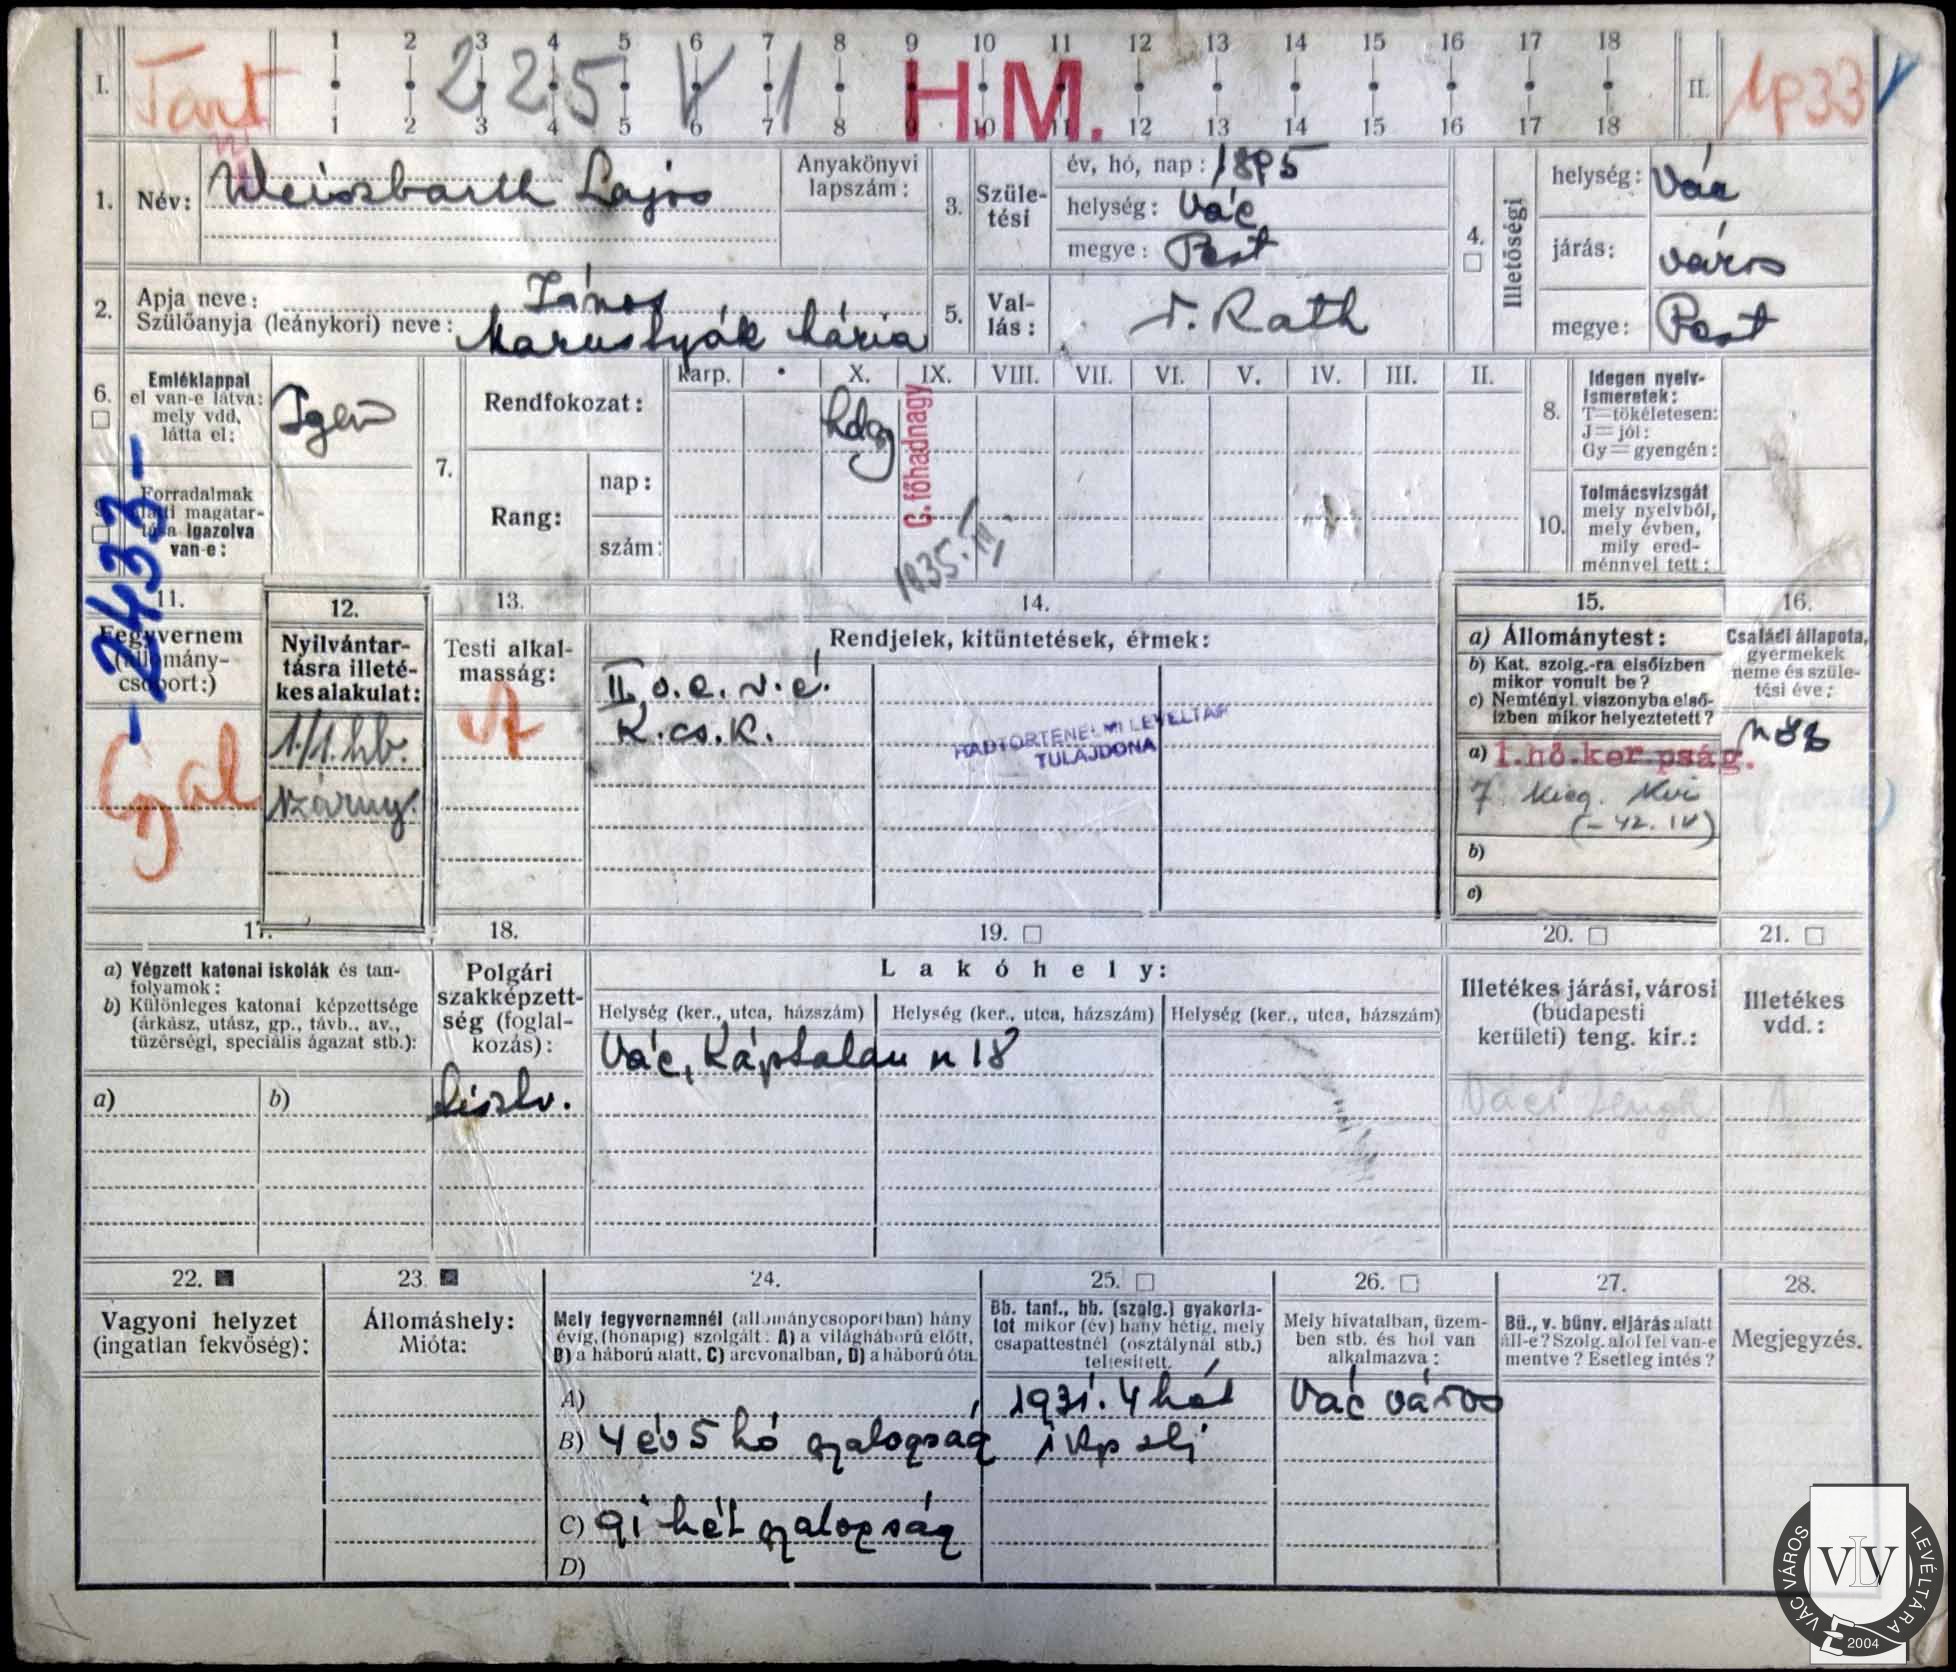 I.
Tart
1 2 3 4 5 6 7 8 9 10 11 12 13 14 15 16 17 18
225 V 1
H.M.
1 2 3 4 5 6 7 8 9 10 11 12 13 14 15 16 17 18
II.
1p33
1.
Név:
Weiszbarth Lajos
Anyakönyvi
lapszám:
3.
Szüle-
tési
év, hó, nap: 1895
helység: Vác
megye: Pest
4.
Illetőségi
helység: Vác
járás: város
megye: Pest
2.
Apja neve: János
Szülőanyja (leánykori) neve: Maruslyák Mária
5.
Val-
lás:
r. Kath
6.
Emléklappal
el van-e látva:
mely vdd.
látta el:
Igen
7.
Rendfokozat:
karp. • X. IX. VIII. VII. VI. V. IV. III. II.
hdgy
C. főhadnagy
Rang:
nap:
szám:
1935. IV.
8.
Idegen nyelv-
ismeretek:
T=tökéletesen:
J=jól:
Gy=gyengén:
9.
Forradalmak
alatti magatar-
tása igazolva
van-e:
-2433-
10.
Tolmácsvizsgát
mely nyelvből,
mely évben,
mily ered-
ménnyel tett:
11.
Fegyvernem
(állomány-
csoport:)
Gyal
12.
Nyilvántar-
tásra illeté-
kes alakulat:
1./1. hb.
szárny.
13.
Testi alkal-
masság:
A
14.
Rendjelek, kitüntetések, érmek:
II. o. e. v. é.
K. cs. k.
HADTÖRTÉNELMI LEVÉLTÁR
TULAJDONA
15.
a) Állománytest:
b) Kat. szolg.-ra elsőízben
mikor vonult be?
c) Nemtényl. viszonyba első-
ízben mikor helyeztetett?
a) 1. hő. ker pság.
7 kieg. kir
(- 42. IV)
b)
c)
16.
Családi állapota,
gyermekek
neme és szüle-
tési éve:
nős
17.
a) Végzett katonai iskolák és tan-
folyamok:
b) Különleges katonai képzettsége
(árkász, utász, gp., távb., av.,
tüzérségi, speciális ágazat stb.):
a) b)
18.
Polgári
szakképzett-
ség (foglal-
kozás):
tisztv.
19.
Lakóhely:
Helység (ker., utca, házszám) Helység (ker., utca, házszám) Helység (ker., utca, házszám)
Vác, Káptalan u 18
20.
Illetékes járási, városi
(budapesti
kerületi) teng. kir.:
21.
Illetékes
vdd.:
22.
Vagyoni helyzet
(ingatlan fekvőség):
23.
Állomáshely:
Mióta:
24.
Mely fegyvernemnél (állománycsoportban) hány
évig, (hónapig) szolgált: A) a világháború előtt,
B) a háború alatt, C) arcvonalban, D) a háború óta.
A)
B) 4 év 5 hó gyalogság
C) 91 hét gyalogság
D)
25.
Bb. tanf., hb. (szolg.) gyakorla-
tot mikor (év) hány hétig, mely
csapattestnél (osztálynál stb.)
teljesített.
1931. 4 hét
26.
Mely hivatalban, üzem-
ben stb. és hol van
alkalmazva:
Vác város
27.
Bü., v. bünv. eljárás alatt
áll-e? Szolg. alól fel van-e
mentve? Esetleg intés?
28.
Megjegyzés.
VÁC VÁROS LEVÉLTÁRA
VLV
2004